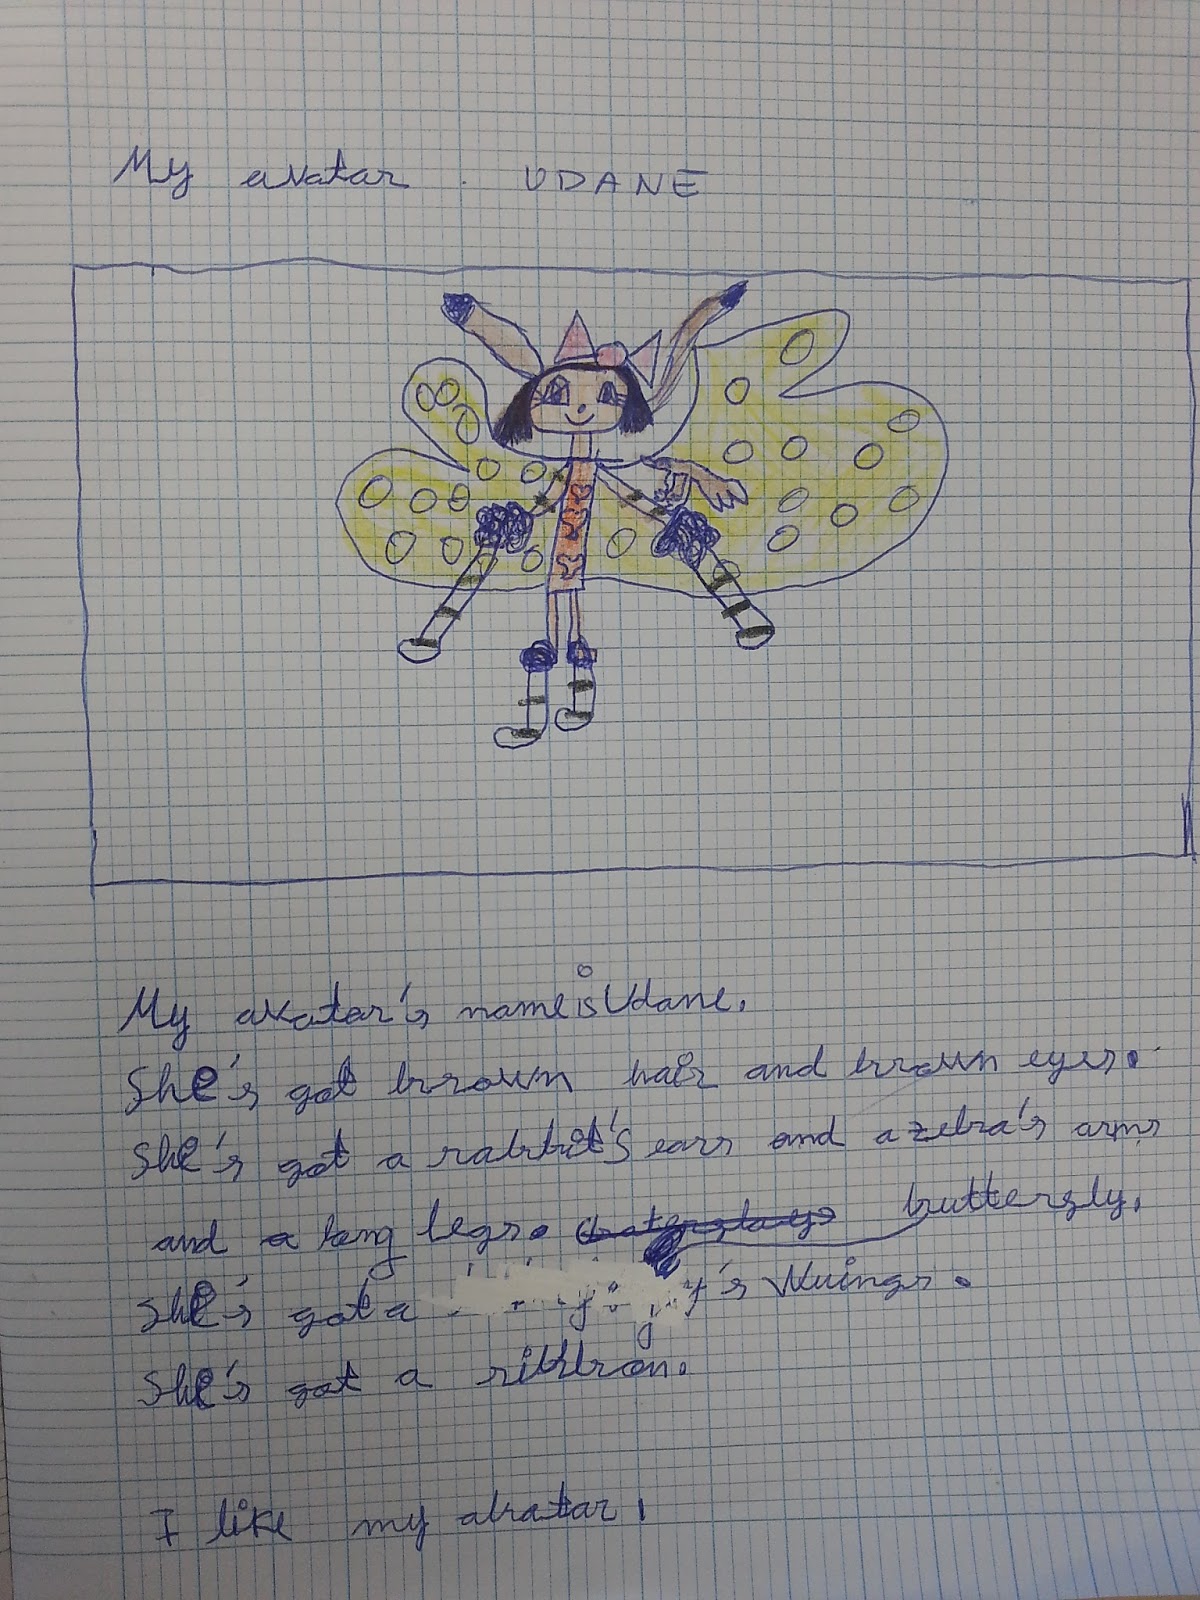 My avatar . UDANE
My avatar's name is Udane.
She's got brown hair and brown eyes.
She's got a rabbit's ears and a zebra's arms
and a long legs. butterfly,
She's got a y's Wuings.
She's got a ribbon.
I like my abatar!